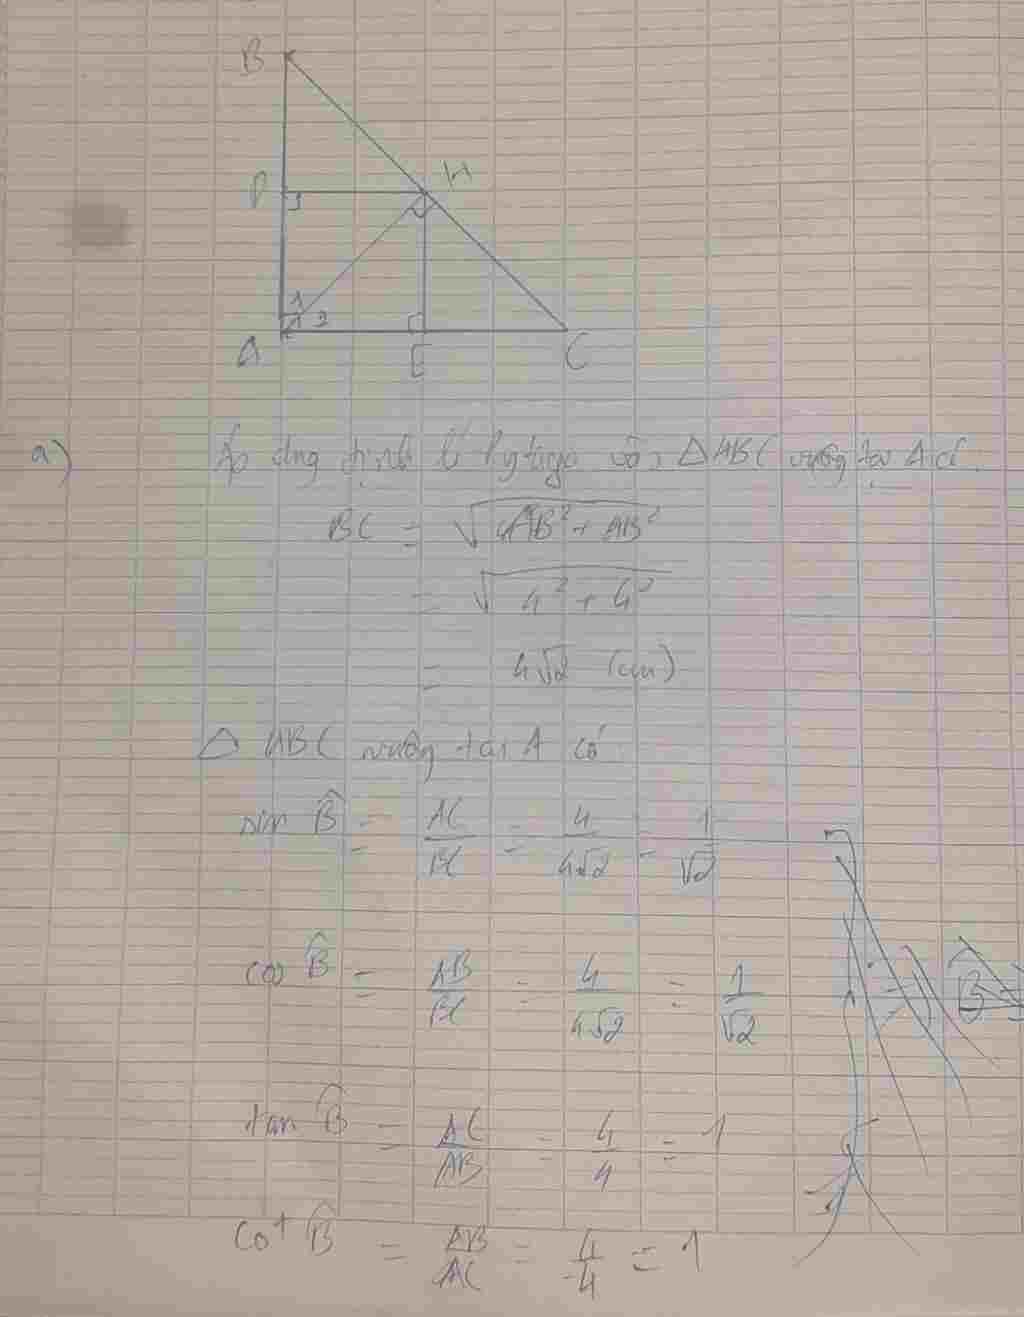 B
D
H
1
1
2
A
E
C
a) Áp dụng định lí Pytago với △ABC vuông tại A có:
BC = √(AB² + AB²)
= √(4² + 4²)
= 4√2 (cm)
△ ABC vuông tại A có
sin B̂ = AC/BC = 4/4√2 = 1/√2
cos B̂ = AB/BC = 4/4√2 = 1/√2
B
tan B̂ = AC/AB = 4/4 = 1
cot B̂ = AB/AC = 4/4 = 1